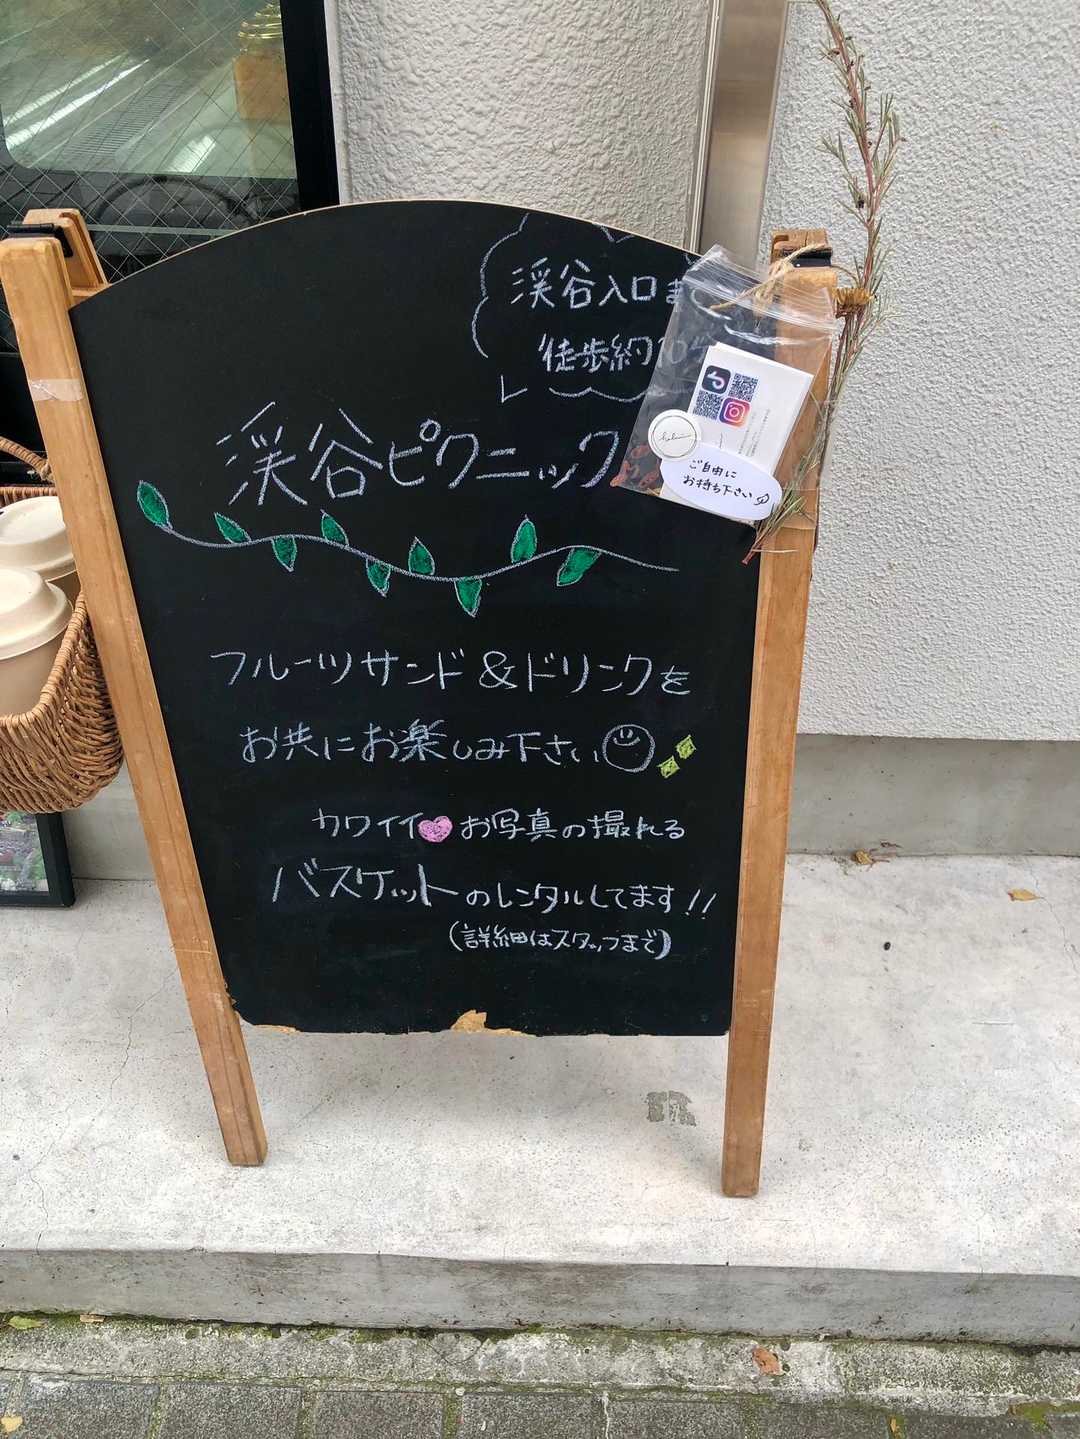 渓谷入口ま
徒歩約10
渓谷ピクニック
フルーツサンド&ドリンクを
お共にお楽しみ下さい
カワイイ お写真の撮れる
バスケットのレンタルしてます!!
(詳細はスタッフまで)
ご自由に
お持ち下さい